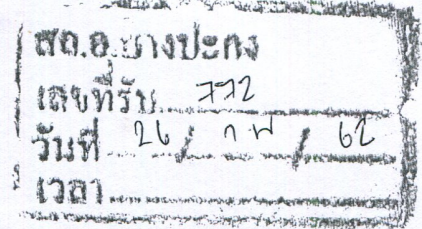 สถ.อ.บางปะกง
เลขที่รับ 772
วันที่ 26 / กพ / 62
เวลา